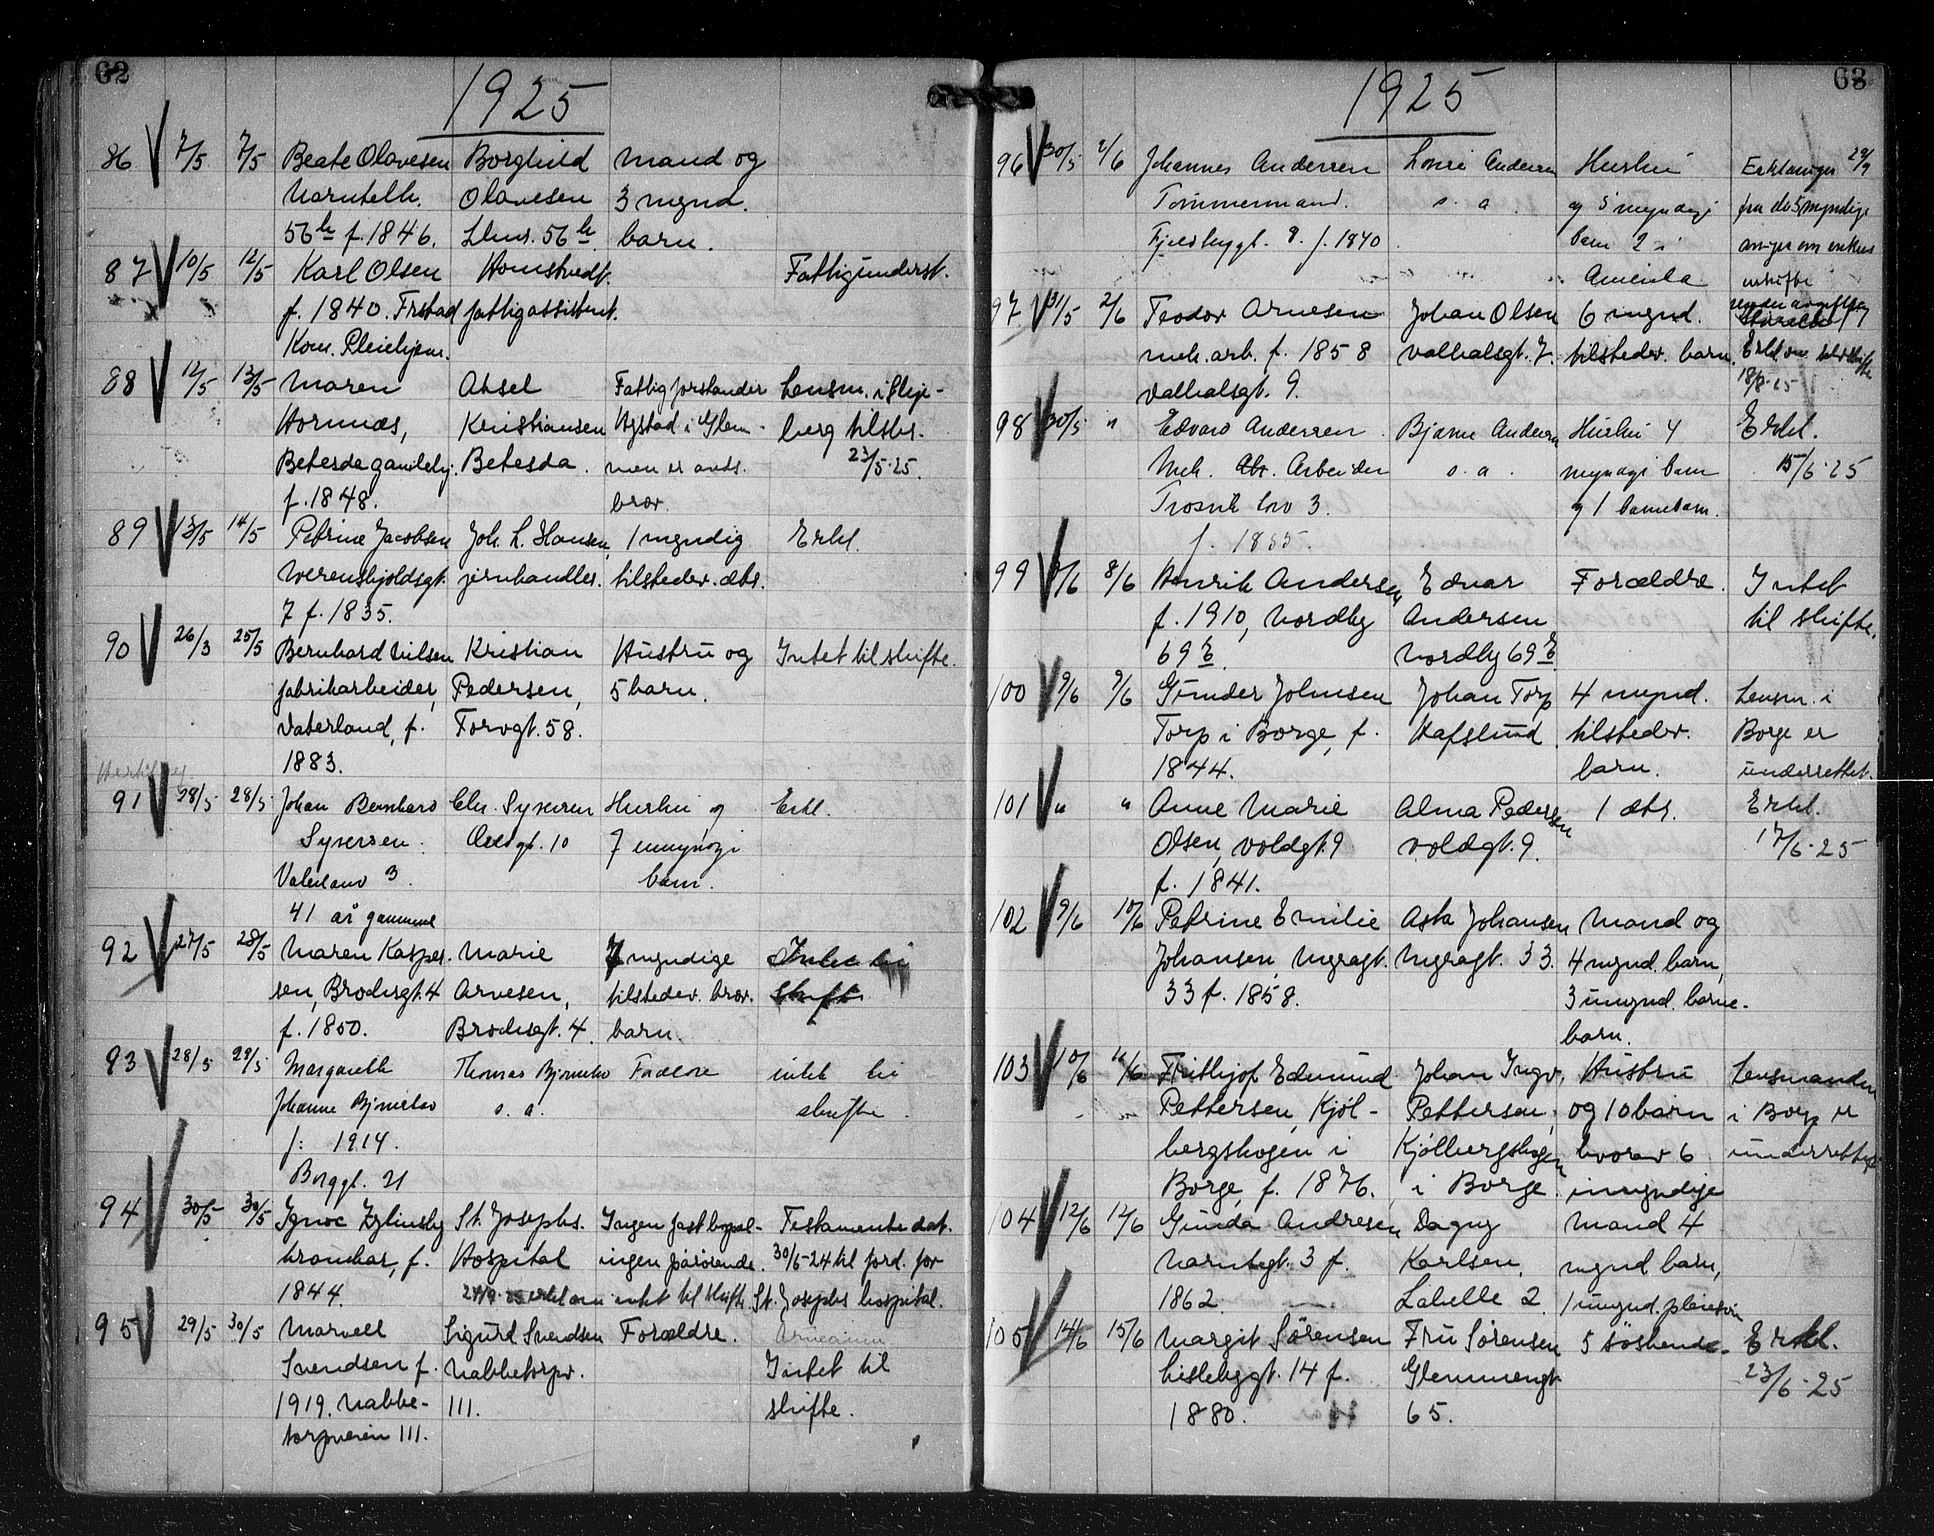 62
1925
86 7/5 7/5 Beate Olavesen Borghild Mand og
Olavesen 3 mynd.
56 f. 1846. 56 barn.
87 10/5 12/5 Karl Olsen Homstvedt. Fattigunderst.
f. 1840. Frstad fattigassistent.
Kom. Pleiehjem.
88 12/5 13/5 Maren Aksel Fattigforstander Lensm. i Skje-
Hornnæs, Kristiansen i Glem- berg tilskr.
Betesda gamlehj. Betesda. men er avds. 23/5-25.
f. 1848. bror.
89 13/5 14/5 Petrine Jacobsen Joh. L. Hansen, 1 myndig Erkl.
Werenskjoldsgt. jernhandler. tilstedev. dtr.
7 f. 1835.
90 26/3 25/5 Bernhard Nilsen Kristian Hustru og Intet til skifte.
fabrikarbeider, Pedersen, 5 barn.
Vaterland, f. Torvgt. 58.
1883.
91 28/5 28/5 Johan Bernhard Chr. Syversen Hustru og Erkl.
Syversen. 10 7 umyndi
Vaterland 3. barn.
41 år gammel
92 27/5 28/5 Maren Kasper- Marie 7 myndige Intet til
sen, Brodsgt. 4 Arvesen, tilstedev. skifte
f. 1850. Brodsgt. 4. barn.
93 28/5 29/5 Margareth Thomas Forældre intet til
Johanne s. a. skifte.
f. 1914.
Borggt. 21
94 30/5 30/5 St. Josephs. Ingen fast bopæl- Testamente dat.
f. Hospital ingen pårørende. 30/5-24 til ford. for
1844. intet til skifte St. Josephs hospital.
95 29/5 30/5 Marvell Sigurd Svendsen Forældre.
Svendsen f. Nabbetorpv. Intet til
1919. Nabbe- 111. skifte.
torpveien 111.
63
1925
96 30/5 2/6 Johannes Andersen Lovise Andersen Hustru Erklæringer 29/9
Tømmermand. s. a. og 5 myndige fra de 5 myndige
8. f. 1840 barn 2 i
Amerika
97 31/5 2/6 Teodor Arnesen Johan Olsen 6 mynd.
mek. arb. f. 1858 Valhalsgt. 7. tilstedev. barn. Erkl.
Valhalsgt. 9.
98 30/5 " Edvard Andersen Bjarne Andersen Hustru 4 Erkl.
Mek. Arbeider s. a. myndi barn 15/6-25
Trosvik 3. og 1 barnebarn.
f. 1855.
99 8/6 Henrik Andersen Edvar Forældre. Intet
f. 1910, Nordby Andersen til skifte.
69 Nordby 69
100 9/6 9/6 Gunder Johnsen Johan Torp 4 mynd. Lensm. i
Torp i Borge, f. Hafslund. tilstedev. Borge er
1844. barn. underrettet.
101 " " Anne Marie Alma Pedersen 1 dtr. Erkl.
Olsen, Voldgt. 9 Voldgt. 9. 17/6-25
f. 1841.
102 9/6 10/6 Petrine Emilie Johansen Mand og
Johansen, 33. 4 mynd. barn,
33 f. 1858. 3 umynd. barne-
barn.
103 10/6 Frithjof Edmund Johan Ingv. Hustru Lensmanden
Pettersen, Kjøl- Pettersen, og 10 barn i Borge er
bergskogen i Kjølbergskogen hvorav 6 underrettet
Borge, f. 1876. i Borge. umyndige
104 12/6 12/6 Gunda Andresen Dagny Mand 4
3 f. Karlsen, mynd. barn,
1862. Labelle 2. 1 umynd.
105 14/6 15/6 Margit Sørensen Fru Sørensen 5 søskende Erkl.
14 f. Glemmengt. 23/6-25
1880. 65.